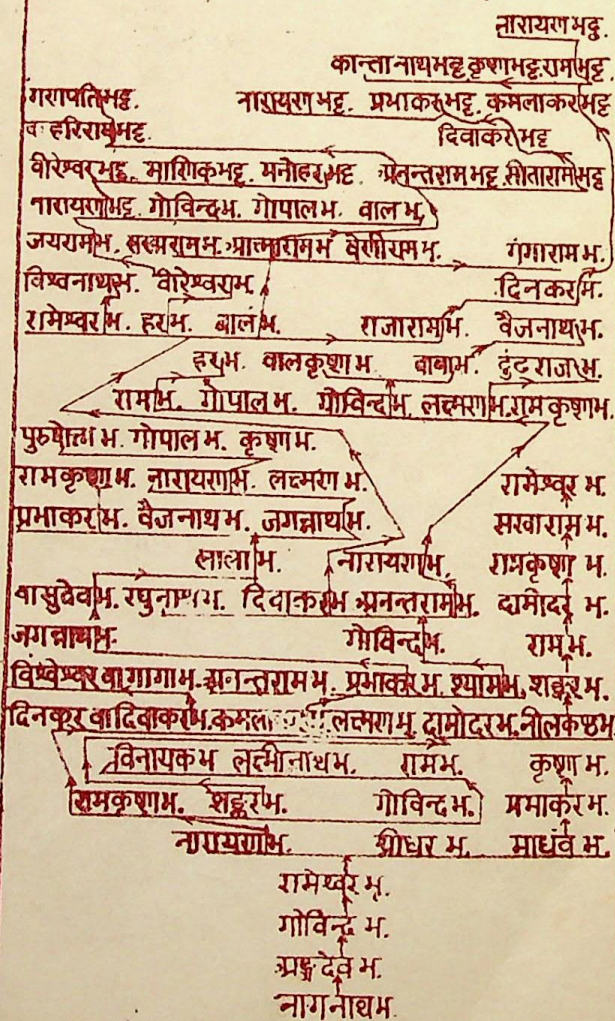 नारायणभट्ट.
कान्तानाथभट्ट कृष्णभट्ट. रामभट्ट.
गरापतिभट्ट. नारायणभट्ट. प्रभाकरभट्ट. कमलाकरभट्ट
व. हरिरामभट्ट. दिवाकरभट्ट
वीरेश्वरभट्ट. माणिकभट्ट. मनोहरभट्ट. अनन्तरामभट्ट. सीतारामभट्ट
नारायणभट्ट. गोविन्दभ. गोपालभ. वालभ.
जयरामभ. सखारामभ. आत्मारामभ वैणीरामभ. गंगारामभ.
विश्वनाथभ. वीरेश्वरभ. दिनकरभ.
रामेश्वरभ. हरभ. बालभ. राजारामभ. वैजनाथभ.
हरभ. वालकृष्णभ. बाबाभ. ढुंढराजभ.
रामभ. गोपालभ. गोविन्दभ. लक्ष्मणभ. रामकृष्णभ.
पुरुषोत्तमभ. गोपालभ. कृष्णभ.
रामकृष्णभ. नारायणभ. लक्ष्मणभ. रामेश्वरभ.
प्रभाकरभ. वैजनाथभ. जगन्नाथभ. सखारामभ.
लालाभ. नारायणभ. रामकृष्णभ.
वासुदेवभ. रघुनाथभ. दिवाकरभ अनन्तरामभ. दामोदरभ.
जगन्नाथभ. गोविन्दभ. रामभ.
विश्वेश्वर वा गागाभ. अनन्तरामभ. प्रभाकरभ. श्यामभ. शङ्करभ.
दिनकर वा दिवाकरभ. लक्ष्मणभ दामोदरभ. नीलकण्ठभ
विनायकभ लक्ष्मीनाथभ. रामभ. कृष्णभ.
रामकृष्णभ. शङ्करभ. गोविन्दभ. प्रभाकरभ.
नारायणभ. श्रीधरभ. माधवभ.
रामेश्वरभ.
गोविन्दभ.
अङ्गदेवभ.
नागनाथभ.